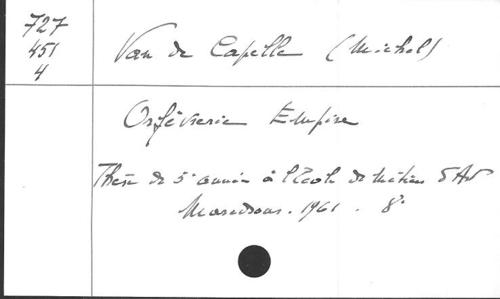 727
451
4
Van de Capelle (Michel)
Orfèvrerie Empire
Thèse de 5e année à l'Ecole de Métiers d'Art
Maredsous. 1961. 8°